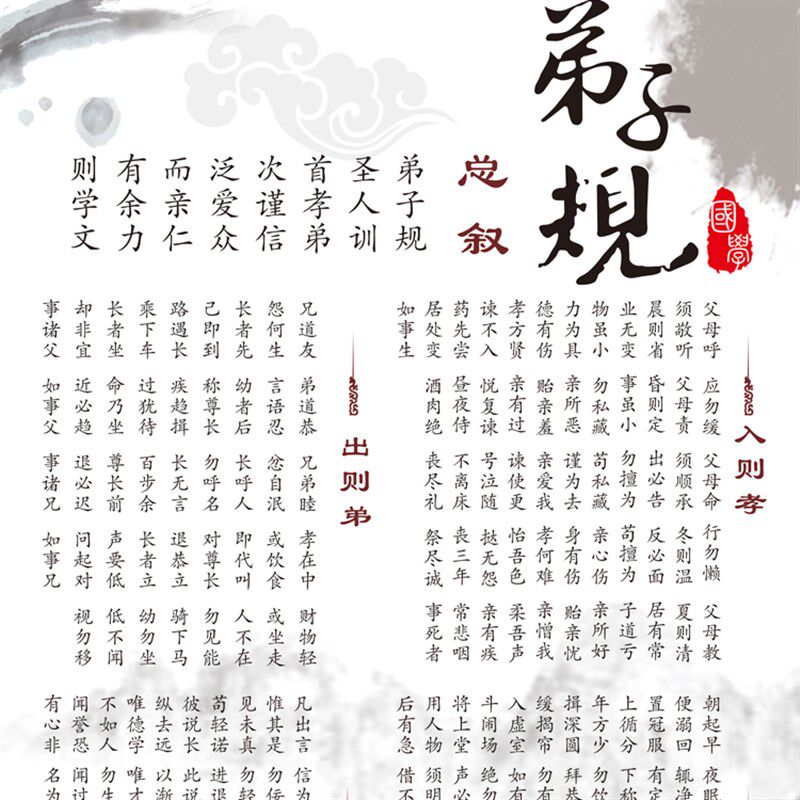 弟子規
國學
总叙
弟子规
圣人训
首孝弟
次谨信
泛爱众
而亲仁
有余力
则学文
入则孝
父母呼 应勿缓 父母命 行勿懒 父母教
须敬听 父母责 须顺承 冬则温 夏则清
晨则省 昏则定 出必告 反必面 居有常
业无变 事虽小 勿擅为 苟擅为 子道亏
物虽小 勿私藏 苟私藏 亲心伤 亲所好
力为具 亲所恶 谨为去 身有伤 贻亲忧
德有伤 贻亲羞 亲爱我 孝何难 亲憎我
孝方贤 亲有过 谏使更 怡吾色 柔吾声
谏不入 悦复谏 号泣随 挞无怨 亲有疾
药先尝 昼夜侍 不离床 丧三年 常悲咽
居处变 酒肉绝 丧尽礼 祭尽诚 事死者
如事生
出则弟
兄道友 弟道恭 兄弟睦 孝在中 财物轻
怨何生 言语忍 忿自泯 或饮食 或坐走
长者先 幼者后 长呼人 即代叫 人不在
己即到 称尊长 勿呼名 对尊长 勿见能
路遇长 疾趋揖 长无言 退恭立 骑下马
乘下车 过犹待 百步余 长者立 幼勿坐
长者坐 命乃坐 尊长前 声要低 低不闻
却非宜 近必趋 退必迟 问起对 视勿移
事诸父 如事父 事诸兄 如事兄
朝起早 夜眠
便溺回 辄净
置冠服 有定
上循分 下称
年方少 勿饮
揖深圆 拜恭
缓揭帘 勿有
入虚室 如有
斗闹场 绝勿
将上堂 声必
用人物 须明
后有急 借不
凡出言 信为
惟其是 勿佞
见未真 勿轻
苟轻诺 进退
彼说长 此说
纵去远 以渐
唯德学 唯才
不如人 勿生
闻誉恐 闻过
有心非 名为